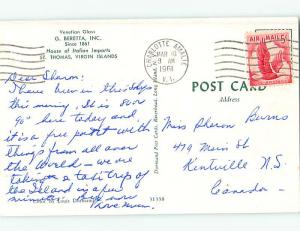 Venetian Glass
G. BERETTA, INC.
Since 1861
House of Italian Imports
ST. THOMAS, VIRGIN ISLANDS
CHARLOTTE AMALIE
MAR
9 AM
1961
V.I.
AIR MAIL 5¢
Dear Sharon:
I have been in this shop
this morning. It is 80 or
90° here today and
it is a free port with
things from all over
the World — we are
taking a taxi trip of
the Island in a few
minutes. Bye now
Love
POST CARD
Address
Miss Sharon Burns
479 Main St
Kentville N.S.
Canada
31338